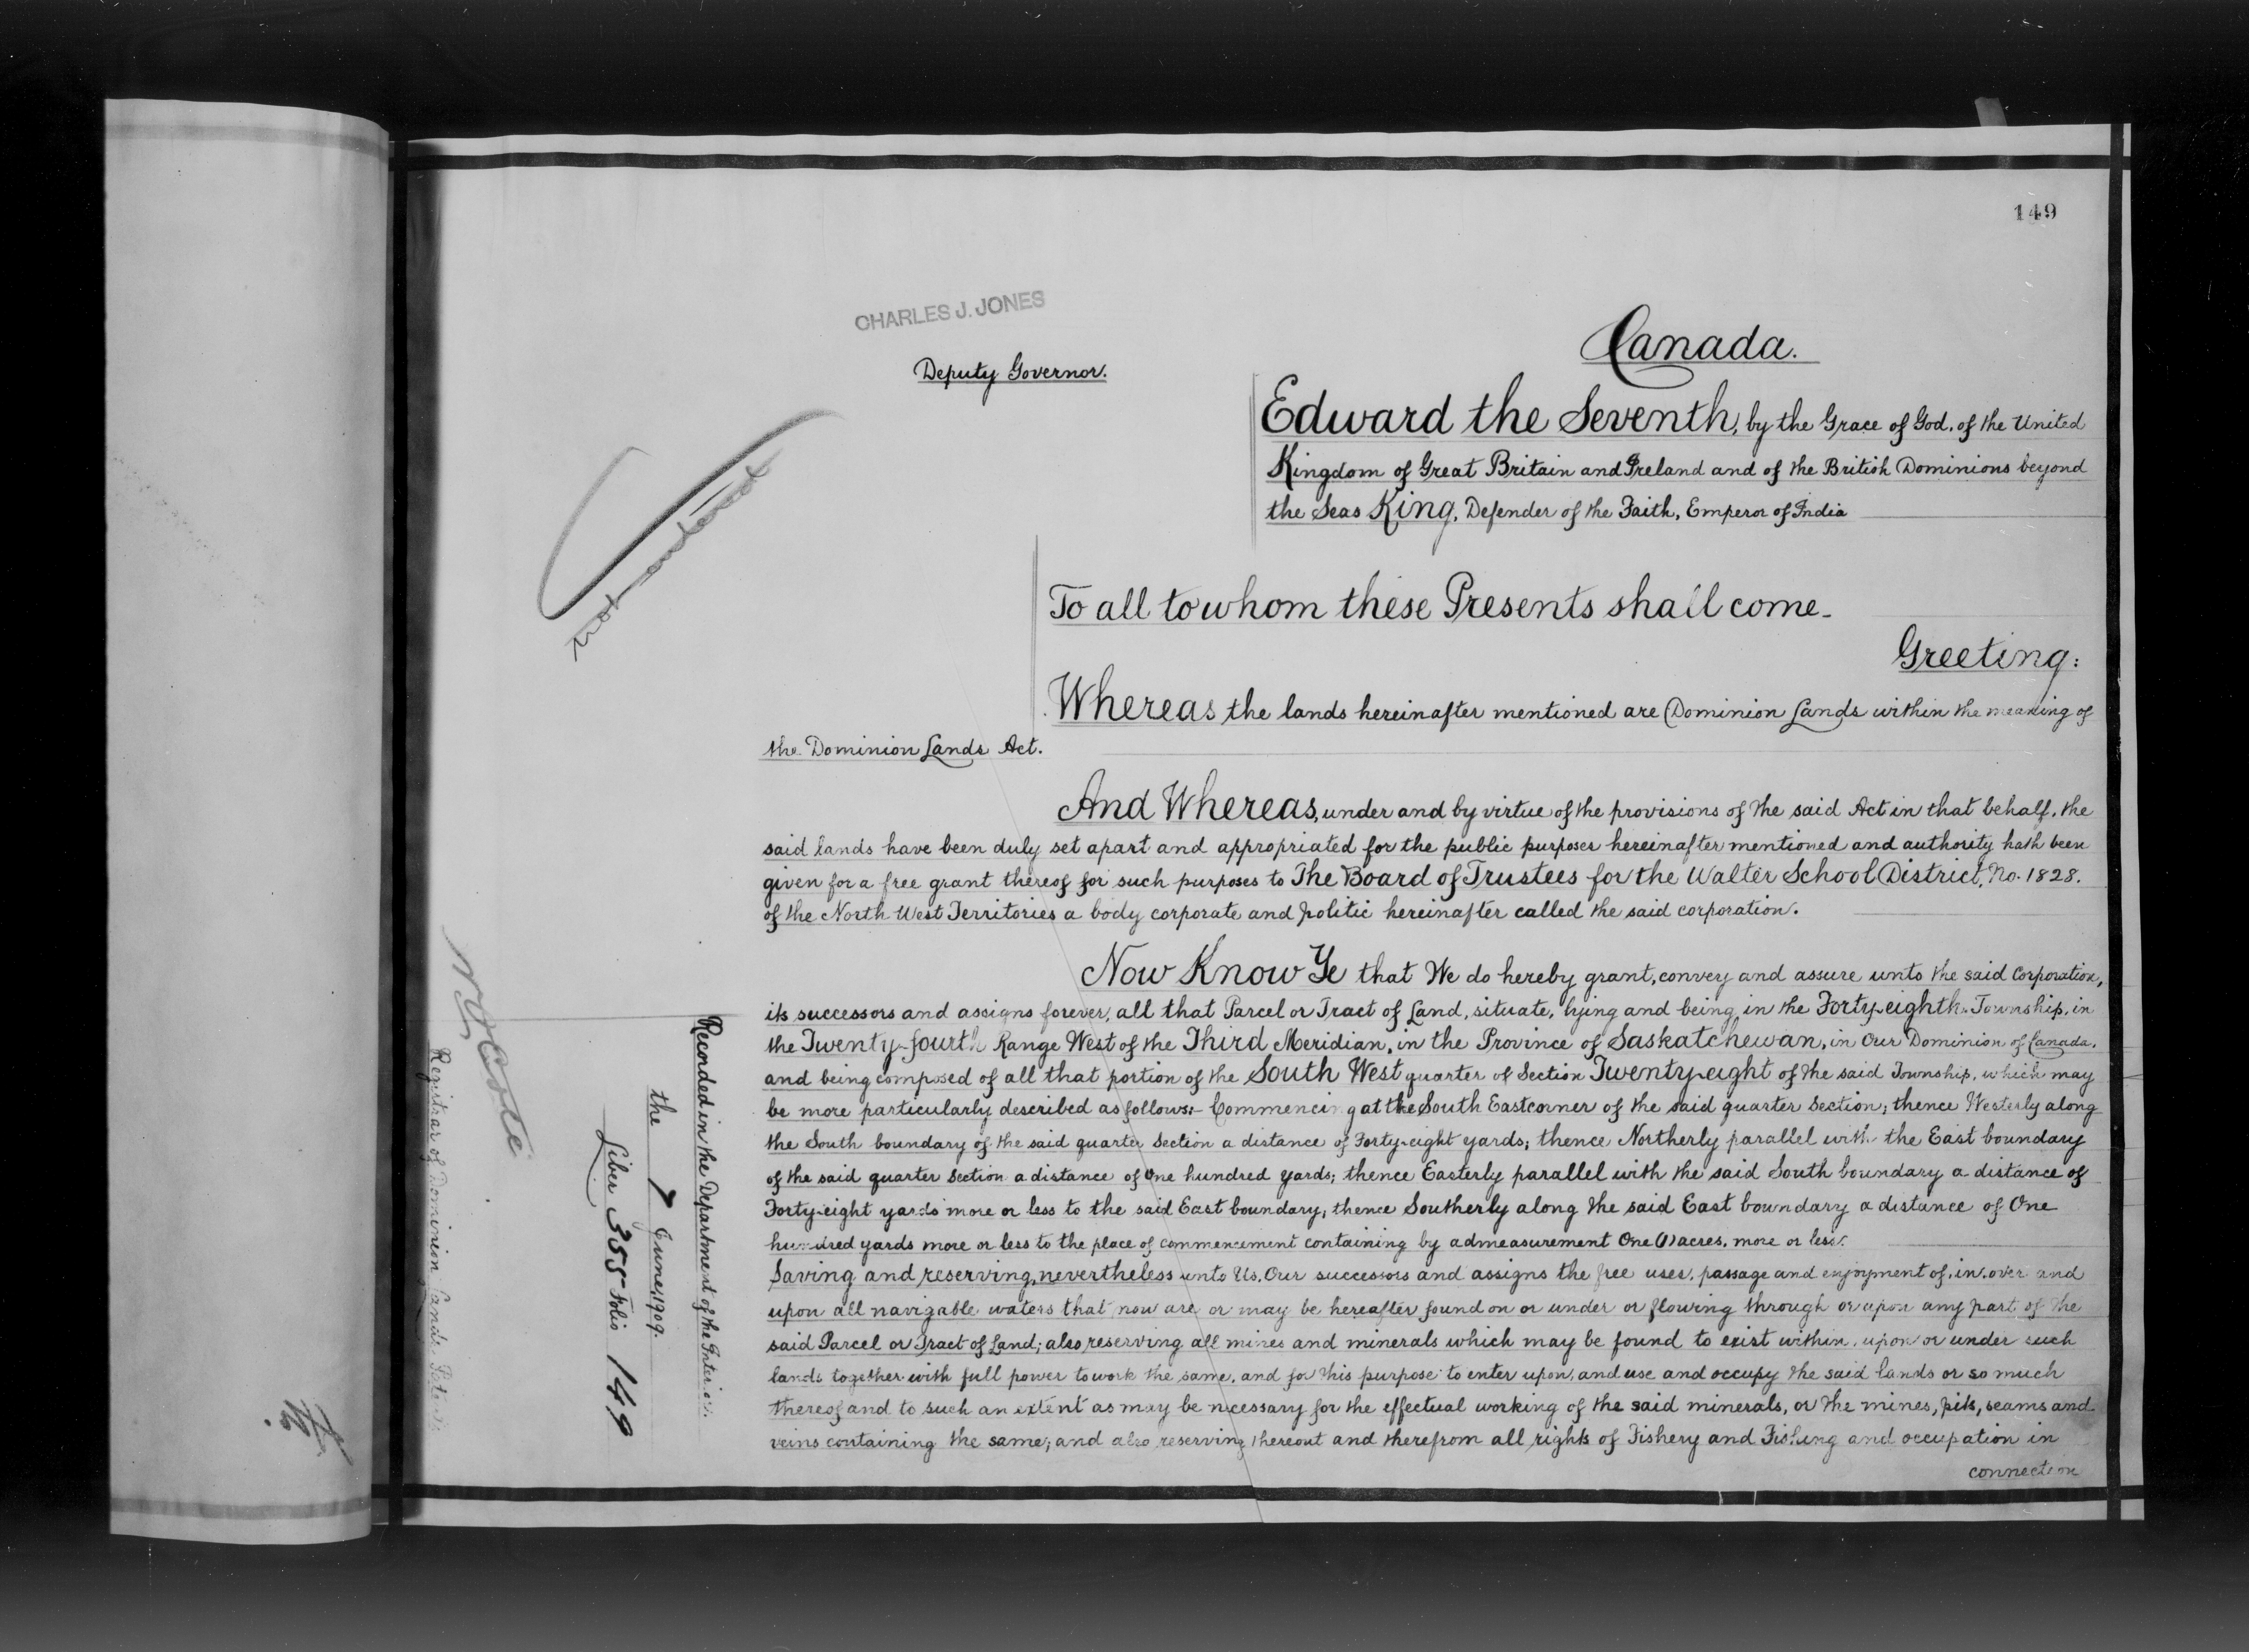 149
CHARLES J. JONES
Deputy Governor.
Canada.
Edward the Seventh, by the Grace of God, of the United
Kingdom of Great Britain and Ireland and of the British Dominions beyond
the Seas King, Defender of the Faith, Emperor of India
To all to whom these Presents shall come_
Greeting:
Whereas the lands hereinafter mentioned are Dominion Lands within the meaning of
the Dominion Lands Act.
And Whereas, under and by virtue of the provisions of the said Act in that behalf, the
said lands have been duly set apart and appropriated for the public purposes hereinafter mentioned and authority hath been
given for a free grant thereof for such purposes to The Board of Trustees for the Walter School District, No. 1828.
of the North West Territories a body corporate and politic hereinafter called the said corporation.
Now Know Ye that We do hereby grant, convey and assure unto the said Corporation,
its successors and assigns forever, all that Parcel or Tract of Land, situate, lying and being, in the Forty-eighth Township, in
the Twenty-fourth Range West of the Third Meridian, in the Province of Saskatchewan, in Our Dominion of Canada,
and being composed of all that portion of the South West quarter of Section Twenty-eight of the said Township, which may
be more particularly described as follows:- Commencing at the South East corner of the said quarter Section; thence Westerly along
the South boundary of the said quarter Section a distance of Forty-eight yards; thence Northerly parallel with the East boundary
of the said quarter Section a distance of One hundred yards; thence Easterly parallel with the said South boundary a distance of
Forty-eight yards more or less to the said East boundary; thence Southerly along the said East boundary a distance of One
hundred yards more or less to the place of commencement containing by admeasurement One (1) acres, more or less.
Saving and reserving, nevertheless unto Us, Our successors and assigns the free uses, passage and enjoyment of, in, over and
upon all navigable waters that now are or may be hereafter found on or under or flowing through or upon any part of the
said Parcel or Tract of Land; also reserving all mines and minerals which may be found to exist within, upon or under such
lands together with full power to work the same, and for this purpose to enter upon, and use and occupy the said lands or so much
thereof and to such an extent as may be necessary for the effectual working of the said minerals, or the mines, pits, seams and
veins containing the same; and also reserving thereout and therefrom all rights of Fishery and Fishing and occupation in
connection
Recorded in the Department of the Interior.
the 7 June, 1909.
Liber 355 Folio 149
N. O. Coté
Registrar of Dominion Lands Patents